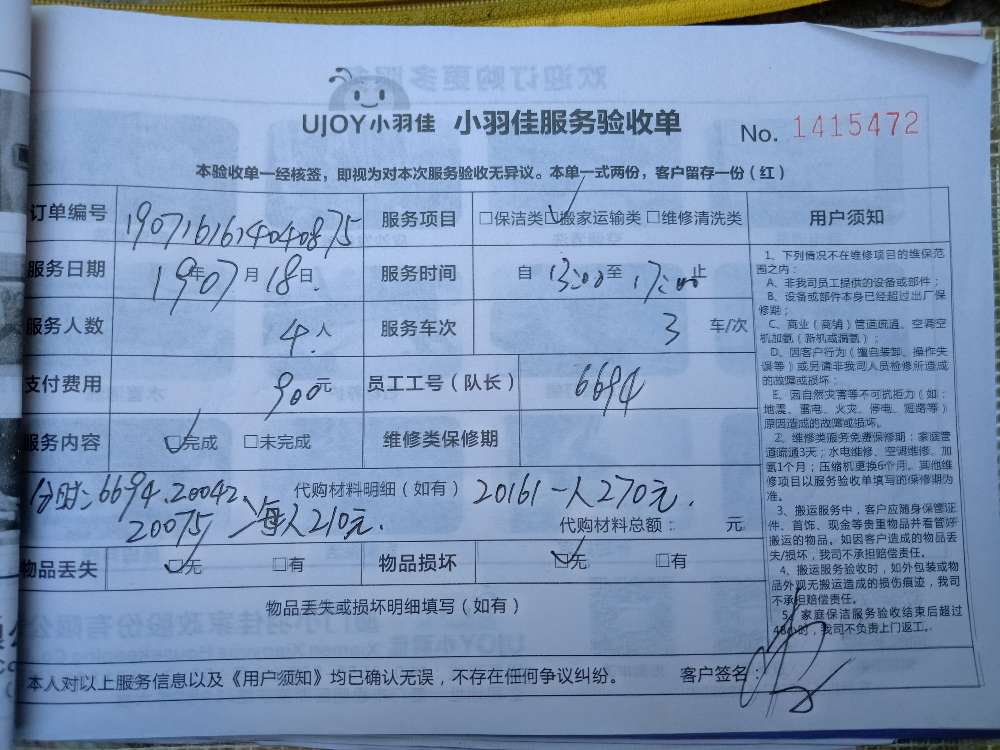 UJOY小羽佳 小羽佳服务验收单 No. 1415472
本验收单一经核签，即视为对本次服务验收无异议。本单一式两份，客户留存一份（红）
订单编号 190716161404040875 服务项目 □保洁类 ☑搬家运输类 □维修清洗类
服务日期 19年07月18日 服务时间 自 13:00 至 17:00 止
服务人数 4人 服务车次 3 车/次
支付费用 900元 员工工号（队长） 6694
服务内容 ☑完成 □未完成 维修类保修期
6694.20042 代购材料明细（如有） 20161一人270元.
20075 每人210元. 代购材料总额： 元
物品丢失 ☑无 □有 物品损坏 ☑无 □有
物品丢失或损坏明细填写（如有）
本人对以上服务信息以及《用户须知》均已确认无误，不存在任何争议纠纷。 客户签名：
用户须知
1、下列情况不在维修项目的维保范
围之内：
A、非我司员工提供的设备或部件；
B、设备或部件本身已经超过出厂保
修期；
C、商业（商铺）管道疏通、空调空
机加氨（跑机或漏氨）；
D、因客户行为（擅自装卸、操作失
误等）或另请非我司人员检修所造成
的故障或损坏；
E、因自然灾害等不可抗拒力（如：
地震、雷电、火灾、停电、短路等）
原因造成的故障或损坏。
2、维修类服务免费保修期：家庭管
道疏通3天；水电维修、空调维修、加
氨1个月；压缩机更换6个月。其他维
修项目以服务验收单填写的保修期为
准。
3、搬运服务中，客户应随身保管证
件、首饰、现金等贵重物品并看管好
搬运的物品。如因客户造成的物品丢
失/损坏，我司不承担赔偿责任。
4、搬运服务验收时，如外包装或物
品外观无搬运造成的损伤痕迹，我司
不承担赔偿责任。
5、家庭保洁服务验收结束后超过
48小时，我司不负责上门返工。